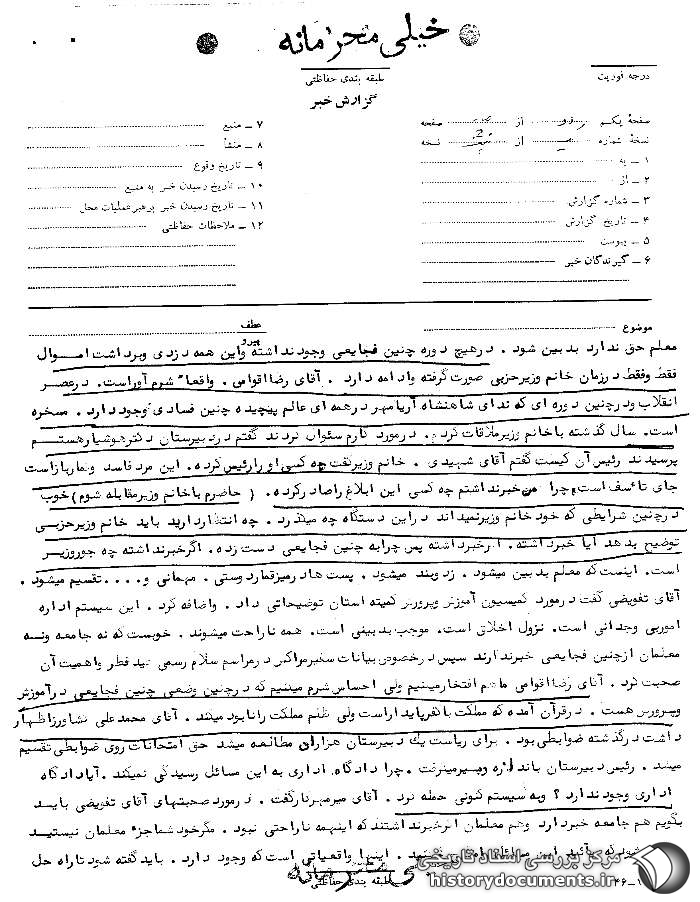 خیلی محرمانه
طبقه بندی حفاظتی
درجه فوریت
گزارش خبر
صفحهٔ یکم از صفحه
نسخهٔ شماره از نسخه
۱ ـ به
۲ ـ از
۳ ـ شماره گزارش
۴ ـ تاریخ گزارش
۵ ـ پیوست
۶ ـ گیرندگان خبر
۷ ـ منبع
۸ ـ منشأ
۹ ـ تاریخ وقوع
۱۰ ـ تاریخ رسیدن خبر به منبع
۱۱ ـ تاریخ رسیدن خبر برهبر عملیات محل
۱۲ ـ ملاحظات حفاظتی
موضوع
عطف
پیرو
معلم حق ندارد بدبین شود . در هیچ دوره چنین فجایعی وجود نداشته و این همه دزدی و برداشت اموال
فقط و فقط در زمان خانم وزیر حزبی صورت گرفته و ادامه دارد . آقای رضا اقوامی . واقعاً شرم آور است . در عصر
انقلاب و در چنین دوره ای که ندای شاهنشاه آریامهر در همه ای عالم پیچیده چنین فسادی وجود دارد . مسخره
است . سال گذشته با خانم وزیر ملاقات کردم . در مورد کارم سئوال کردند گفتم در دبیرستان دکتر هوشیار هستم
پرسیدند رئیس آن کیست گفتم آقای شهیدی . خانم وزیر گفت چه کسی او را رئیس کرده . این مرد فاسد و قمارباز است
جای تأسف است چرا من خبر نداشتم چه کسی این ابلاغ را صادر کرده . ( حاضرم با خانم وزیر مقابله شوم ) خوب
در چنین شرایطی که خود خانم وزیر نمیداند در این دستگاه چه میگذرد . چه انتظار دارید باید خانم وزیر حزبی
توضیح بدهد آیا خبر داشته . اگر خبر داشته پس چرا به چنین فجایعی دست زده . اگر خبر نداشته چه جور وزیر
است . اینست که معلم بدبین میشود . زد و بند میشود . پست ها در میز قمار دوستی . مهمانی و .... تقسیم میشود .
آقای تفویضی گفت در مورد کمیسیون آموزش و پرورش کمیته استان توضیحاتی داد . و اضافه کرد . این سیستم اداره
امور بی وجدانی است . نزول اخلاق است . موجب بدبینی است . همه ناراحت میشوند . خوبست که نه جامعه و نه
معلمان از چنین فجایعی خبر ندارند سپس در خصوص بیانات سفیر مراکش در مراسم سلام رسمی عید فطر و اهمیت آن
صحبت کرد . آقای رضا اقوامی ما هم افتخار میکنیم ولی احساس شرم میکنیم که در چنین وضعی چنین فجایعی در آموزش
و پرورش هست . در قرآن آمده که مملکت با کفر پایدار است ولی ظلم مملکت را نابود میکند . آقای محمد علی کشاورز اظهار
داشت در گذشته ضوابطی بود . برای ریاست یک دبیرستان هزاران مطالعه میشد حق امتحانات روی ضوابطی تقسیم
میشد . رئیس دبیرستان باند . چرا دادگاه اداری به این مسائل رسیدگی نمیکند . آیا دادگاه
اداری وجود ندارد ؟ و به سیستم کنونی حمله کرد . آقای میرمیرناز گفت . در مورد صحبتهای آقای تفویضی باید
بگویم هم جامعه خبر دارد و هم معلمان اگر خبر نداشتند که اینهمه ناراحتی نبود . مگر خود شما جزء معلمان نیستید
این مسائل . اینها واقعیاتی است که وجود دارد . باید گفته شود تا راه حل
خیلی محرمانه
طبقه بندی حفاظتی
مرکز بررسی اسناد تاریخی
historydocuments.ir